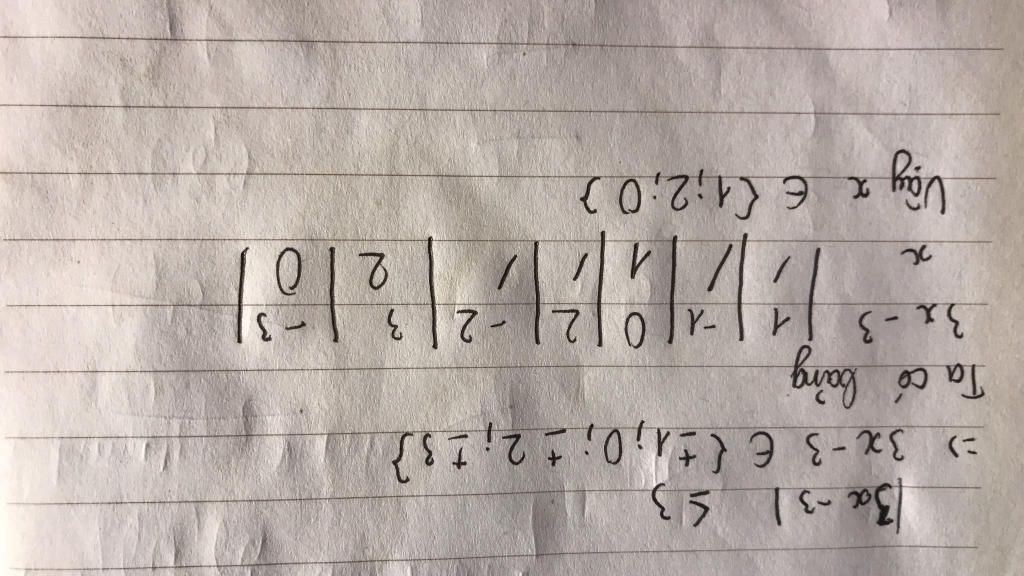 |3x - 3| ≤ 3
=> 3x - 3 ∈ {±1; 0; ±2; ±3}
Ta có bảng
3x - 3 | 1 | -1 | 0 | 2 | -2 | 3 | -3 |
x | / | / | 1 | / | / | 2 | 0 |
Vậy x ∈ {1; 2; 0}